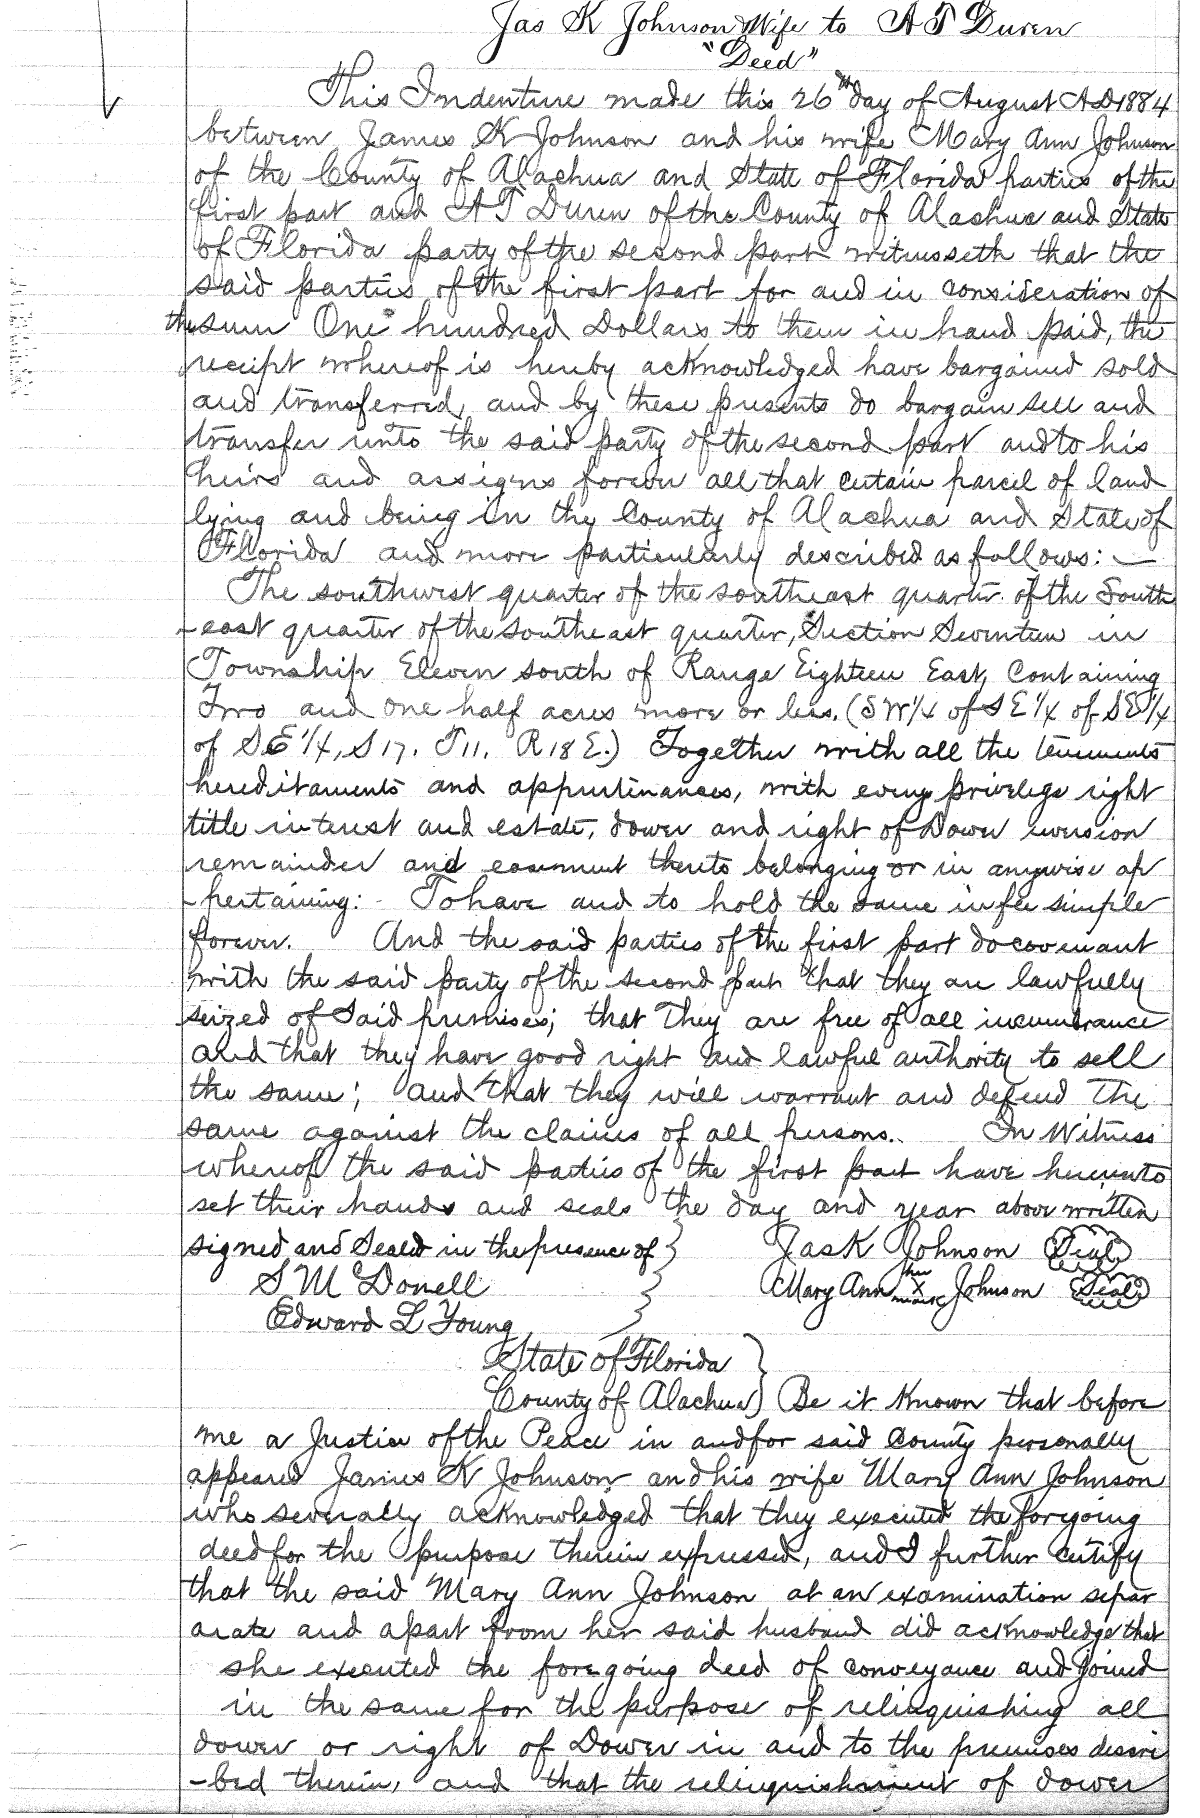 Jas K Johnson & Wife to A T Duren
"Deed"
This Indenture made this 26th day of August AD 1884
between James K Johnson and his wife Mary Ann Johnson
of the County of Alachua and State of Florida parties of the
first part and A T Duren of the County of Alachua and State
of Florida party of the second part witnesseth that the
said parties of the first part for and in consideration of
the sum One hundred Dollars to them in hand paid, the
receipt whereof is hereby acknowledged have bargained sold
and transferred, and by these presents do bargain sell and
transfer unto the said party of the second part and to his
heirs and assigns forever all that certain parcel of land
lying and being in the County of Alachua and State of
Florida and more particularly described as follows: —
The southwest quarter of the southeast quarter of the South
-east quarter of the southeast quarter, Section Seventeen in
Township Eleven south of Range Eighteen East, Containing
Two and one half acres more or less. (SW 1/4 of SE 1/4 of SE 1/4
of SE 1/4, S 17. T 11. R 18 E.) Together with all the tenements
hereditaments and appurtinances, with every privelege right
title interest and estate, dower and right of Dower reversion
remainder and easement thereto belonging or in anywise ap
-pertaining: - To have and to hold the same in fee simple
forever. And the said parties of the first part do covenant
with the said party of the second part that they are lawfully
seized of Said premises; that They are free of all incumbrance
and that they have good right and lawful authority to sell
the same; and that they will warrant and defend The
same against the claims of all persons. In Witness
whereof the said parties of the first part have hereunto
set their hands and seals the day and year above written
signed and Sealed in the presence of } Jas K Johnson (Seal)
S McDonell } Mary Ann her X mark Johnson (Seal)
Edward L Young
State of Florida }
County of Alachua } Be it Known that before
me a Justice of the Peace in and for said County personally
appeared James K Johnson and his wife Mary Ann Johnson
who severally acknowledged that they executed the foregoing
deed for the purpose therein expressed, and I further certify
that the said Mary Ann Johnson at an examination separ
arate and apart from her said husband did acknowledge that
she executed the foregoing deed of conveyance and joined
in the same for the purpose of relinquishing all
dower or right of Dower in and to the premises descri
-bed therein, and that the relinquishment of dower